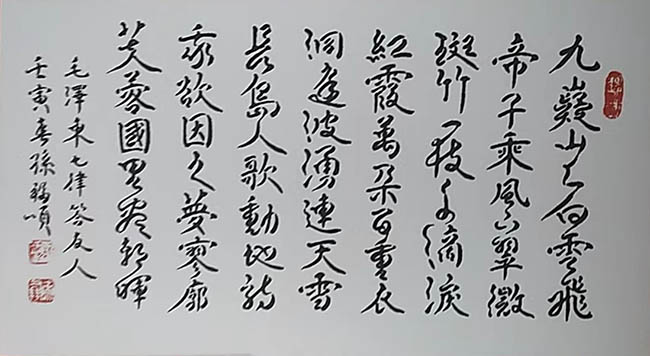 九嶷山上白雲飛
帝子乘風下翠微
斑竹一枝千滴淚
紅霞萬朵百重衣
洞庭波湧連天雪
長島人歌動地詩
我欲因之夢寥廓
芙蓉國里盡朝暉
毛澤東七律答友人
壬寅春孫